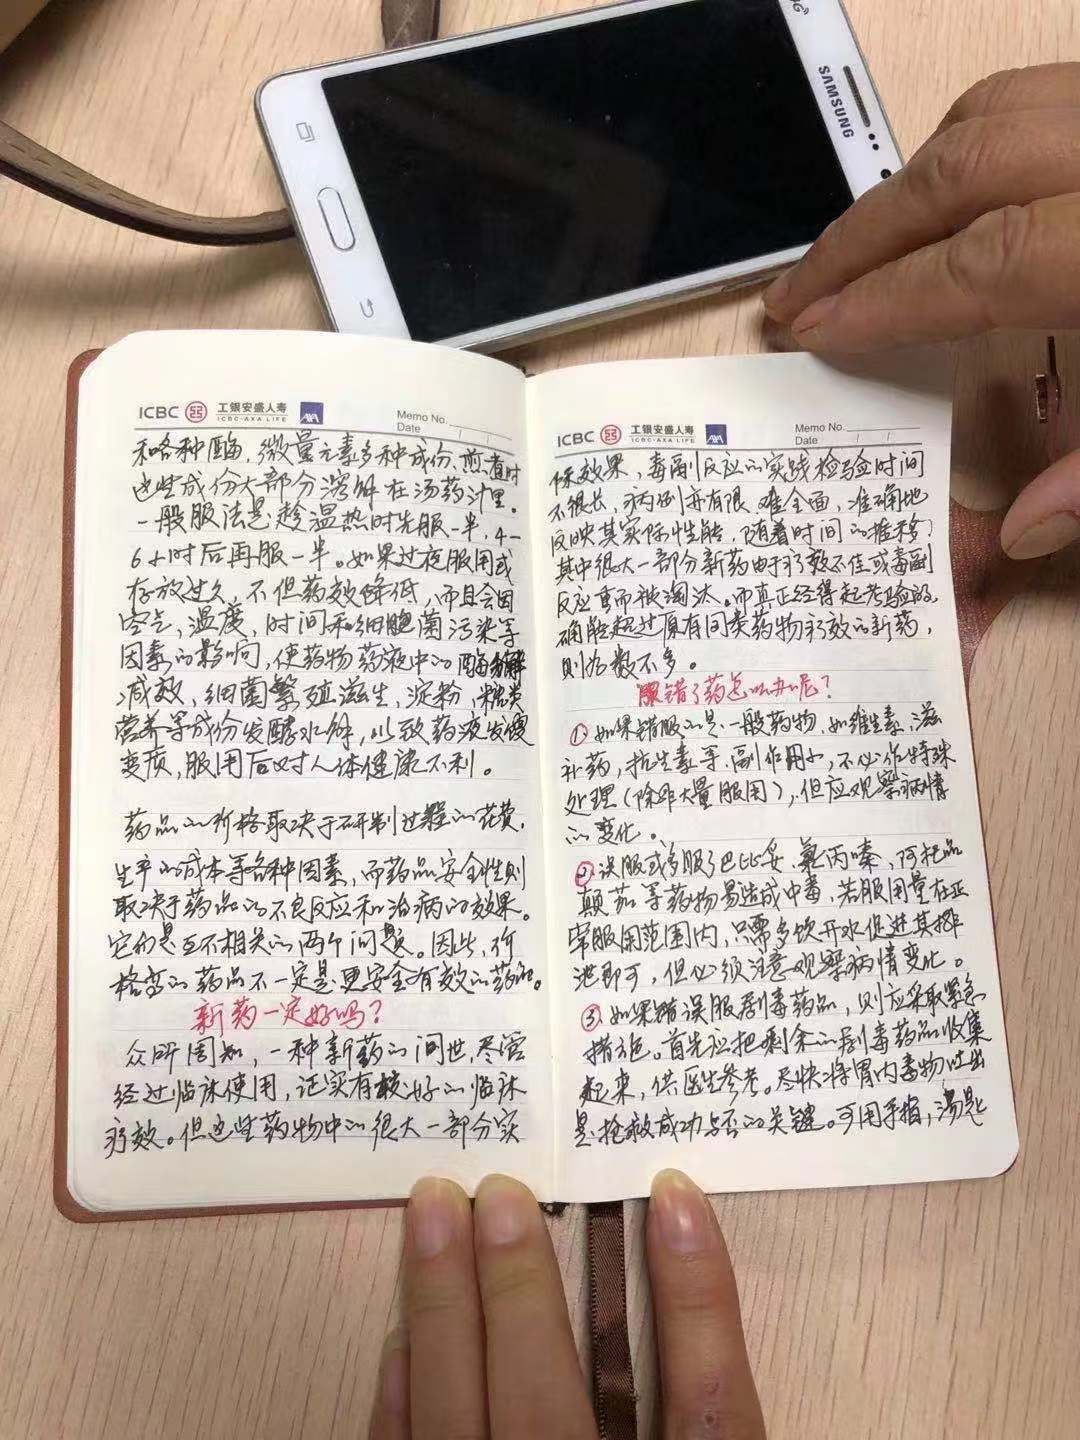 SAMSUNG
4G
ICBC 工银安盛人寿 AXA
ICBC-AXA LIFE
Memo No.
Date / /
和各种酶,微量元素多种成份,煎煮时
这些成份大部分溶解在汤药汁里。
一般服法是趁温热时先服一半,4-
6小时后再服一半。如果过夜服用或
存放过久,不但药效降低,而且会因
空气,温度,时间和细胞菌污染等
因素的影响,使药物药液中的酶解
减效,细菌繁殖滋生,淀粉,糖类
营养等成份发酵水解,以致药液发馊
变质,服用后对人体健康不利。
药品的价格取决于研制过程的花费,
生产的成本等各种因素,而药品安全性则
取决于药品的不良反应和治病的效果。
它们是互不相关的两个问题。因此,价
格高的药品不一定是更安全有效的药品。
新药一定好吗?
众所周知,一种新药的问世,尽管
经过临床使用,证实有较好的临床
疗效。但这些药物中的很大一部分实
ICBC 工银安盛人寿 AXA
ICBC-AXA LIFE
Memo No.
Date / /
际效果,毒副反应的实践检验时间
不很长,病例亦有限,难全面,准确地
反映其实际性能,随着时间的推移,
其中很大一部分新药由于疗效不佳或毒副
反应高而被淘汰。而真正经得起考验的,
确能超过原有同类药物疗效的新药,
则为数不多。
服错了药怎么办呢?
①如果错服的是一般药物,如维生素,滋
补药,抗生素等,副作用小,不必作特殊
处理(除非大量服用),但应观察病情
的变化。
②误服或多服了巴比妥,氯丙嗪,阿托品
颠茄等药物易造成中毒,若服用量在正
常服用范围内,只需多饮开水促进其排
泄即可,但必须注意观察病情变化。
③如果错误服剧毒药品,则应采取紧急
措施。首先应把剩余的剧毒药品收集
起来,供医生参考。尽快将胃内毒物吐出
是抢救成功与否的关键。可用手指,汤匙